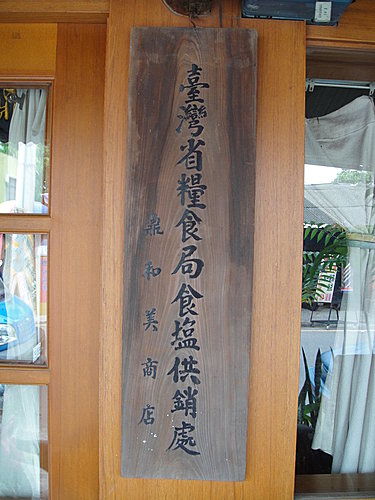 臺灣省糧食局食塩供銷處
鼎和美商店